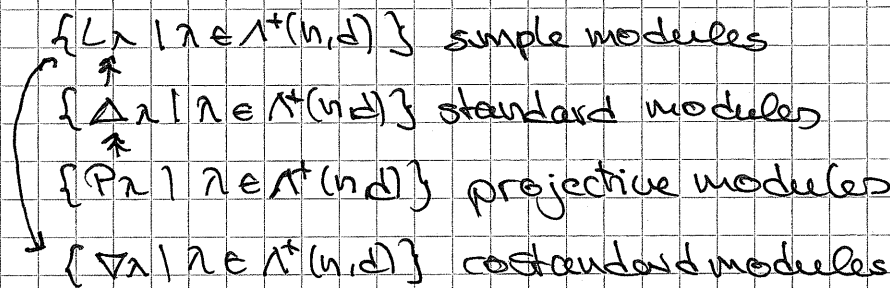 {Lλ | λ ∈ Λ⁺(n,d)} simple modules
↠
{Δλ | λ ∈ Λ⁺(n,d)} standard modules
↠
{Pλ | λ ∈ Λ⁺(n,d)} projective modules
{∇λ | λ ∈ Λ⁺(n,d)} costandard modules